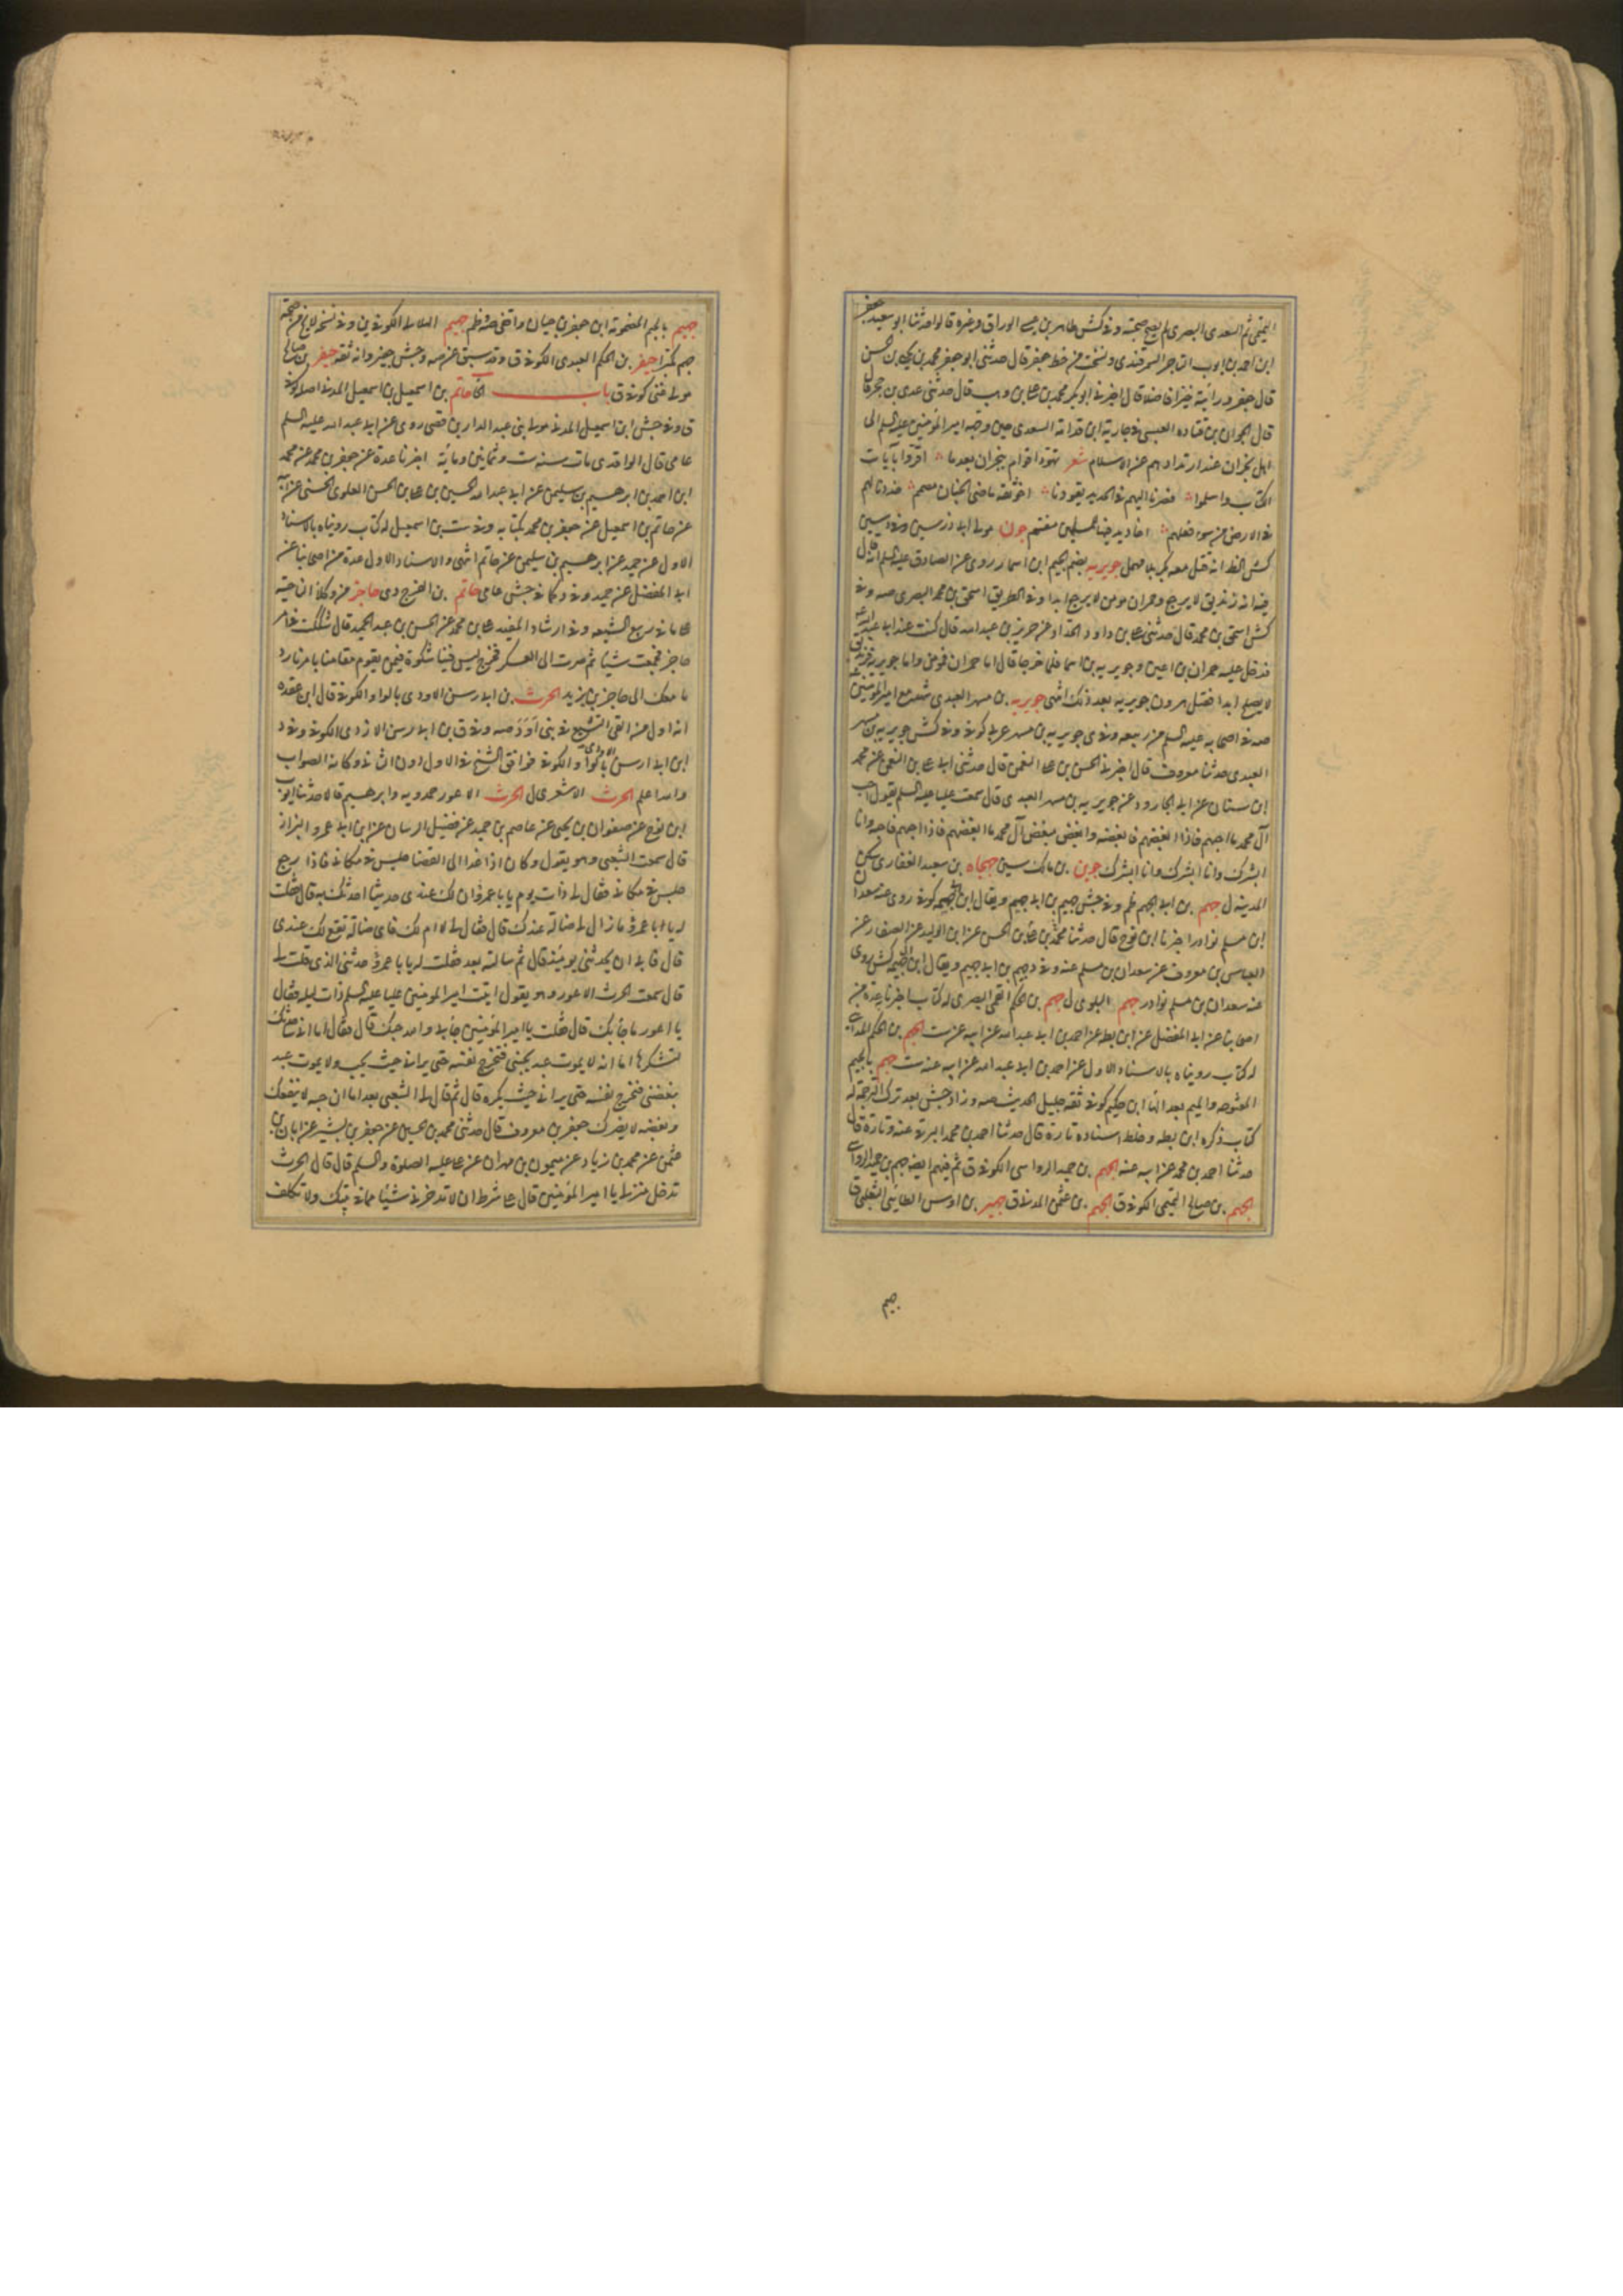 التميمى ثم السعدى البصرى لم يصح صحبته وفى كش طاهر بن عيسى الوراق وغيره قالوا حدثنا ابو سعيد جعفر
ابن احمد بن ايوب التاجر السمرقندى ونسخت من خط جعفر قال حدثنى ابو جعفر محمد بن يحيى بن الحسن
قال جعفر ورأيته خيرا فاضلا قال اخبرنى ابو بكر محمد بن على بن وهب قال حدثنى عدى بن حجر قال
قال الجون بن قتاده العبسى فى جارية ابن قدامة السعدى حين وجهه امير المؤمنين عليه السلم الى
اهل نجران عند ارتدادهم عن الاسلام شعر تهود اقوام بنجران بعد ما اقروا بآيات
الكتاب واسلموا قصدنا اليهم فى الحديد يقودنا اخو ثقة ماضى الجنان مصمم خددنا لهم
فى الارض من سوء فعلهم اخاديد فيها للمسيئين منقم جون مولى ابى ذر سين وفى سين
كش الخط انه قتل معه بكربلا مهمل جويريه بضم الجيم ابن اسماء روى عن الصادق عليه السلم انه قال
فيه انه زنديق لا يرجع وحمران مومن لا يرجع ابدا وفى الطريق اسحق بن محمد البصرى صه وفى
كش اسحق بن محمد قال حدثنى على بن داود الحداد عن حريز بن عبد الله قال كنت عند ابى عبد الله
فدخل عليه حمران بن اعين وجويريه بن اسما فلما خرجا قال اما حمران فومن واما جويريه فزنديق
لا يصلح ابدا فقتل هرون جويريه بعد ذلك انتهى جويريه بن مسهر العبدى شهد مع امير المؤمنين
صه فى اصحابه عليه السلم من ربيعه وفى ى جويريه بن مسهر عربى كوفى وفى كش جويريه بن مسهر
العبدى حدثنا معروف قال اخبرنى الحسن بن على النعمن قال حدثنى ابى على بن النعمن عن محمد
ابن سنان عن ابى الجارود عن جويريه بن مسهر العبدى قال سمعت عليا عليه السلم يقول احب
آل محمد ما احبهم فاذا ابغضهم فابغضه وابغض مبغض آل محمد ما ابغضهم فاذا احبهم فاحبه وانا
ابشرك وانا ابشرك وانا ابشرك جوين بن مالك سين جهجاه بن سعيد الغفارى سكن
المدينه ل جهم بن ابى الجهم ظم وفى جش جهيم بن ابى جهيم ويقال ابن ابى جهمه كوفى روى عنه سعدان
ابن مسلم نوادر اخبرنا ابن نوح قال حدثنا محمد بن على بن الحسن عن ابن الوليد عن الصفار عن
العباس بن معروف عن سعدان بن مسلم عنه وفى د جهيم بن ابى جهيم ويقال ابن ابى جهمه كش روى
عنه سعدان بن مسلم نوادر جهم البلوى ل جهم بن الحكم القمى البصرى له كتاب اخبرنا عدة من
اصحابنا عن ابى المفضل عن ابن بطه عن احمد بن ابى عبد الله عن ابيه عنه ست الجهم بن الحكم المدائنى
له كتاب رويناه بالاسناد الاول عن احمد بن ابى عبد الله عن ابيه عنه ست جهم بالجيم
المفتوحه والميم بعد الها ابن حكيم كوفى ثقه جليل الحديث صه وزاد جش بعد ترك الترجمة له
كتاب ذكره ابن بطه وخلط اسناده تارة قال حدثنا احمد بن محمد البرقى عنه وتارة قال
حدثنا احمد بن محمد عن ابيه عنه الجهم بن حميد الرواسى الكوفى ق ثم فيهم ايضا جهم بن حميد الرواسى
الجهم بن صالح التميمى الكوفى ق الجهم بن عثمن المدنى ق جهير بن اوس الطائى الثعلبى ق
جهيم
جهيم بالجيم المضمومة ابن جعفر بن حيان واقفى صه وظم جهيم الهلالى الكوفى ين وفى نسخه لا يخ من صحة
جهم مكبرا جيفر بن الحكم العبدى الكوفى ق وقد سبق عن صه وجش جفير وانه ثقه جيفر بن صالح
مولى غنى كوفى ق باب الحا حاتم بن اسمعيل بن اسمعيل المدنى اصله كوفى
ق وفى جش ابن اسمعيل المدنى مولى بنى عبد الدار بن قصى روى عن ابى عبد الله عليه السلم
عامى قال الواقدى مات سنه ست وثمانين ومائة اخبرنا عدة عن جعفر بن محمد عن محمد
ابن احمد بن ابرهيم بن سليمن عن ابى عبد الله الحسين بن على بن الحسن العلوى الحسنى عن ابيه
عن حاتم بن اسمعيل عن جعفر بن محمد بكتابه وفى ست بن اسمعيل له كتاب رويناه بالاسناد
الاول عن حميد عن ابرهيم بن سليمن عن حاتم انتهى والاسناد الاول عدة من اصحابنا عن
ابى المفضل عن حميد وفى د كما فى جش عامى حاتم بن الفرج دى حاجز من وكلاء الناحيه
على ما فى ربيع الشيعه وفى ارشاد المفيد على بن محمد عن الحسن بن عبد الحميد قال شككت فى امر
حاجز فجمعت شيئا ثم صرت الى العسكر فخرج ليس فينا شك ولا فيمن يقوم مقامنا بامرنا رد
ما معك الى حاجز بن يزيد الحرث بن ابى رسن الاودى بالواو الكوفى قال ابن عقده
انه اول من القى التشيع فى بنى اود صه وفى ق بن ابى رسن الازدى الكوفى وفى د
ابن ابى ارسن الاودى بالواو الكوفى فوافق الشيخ فى الاول دون الثانى وكانه الصواب
والله اعلم الحرث الاشعرى ل الحرث الاعور حمدويه وابرهيم قالا حدثنا ايوب
ابن نوح عن صفوان بن يحيى عن عاصم بن حميد عن فضيل الرسان عن ابن ابى عمرو البزاز
قال سمعت الشعبى وهو يقول وكان اذا غدا الى القضا جلس فى مكانى فاذا رجع
جلس فى مكانى فقال لى ذات يوم يا ابا عمرو ان لك عندى حديثا احدثك به قال فقلت
له يا ابا عمرو ما زال لى ضالة عندك قال فقال لى لا ام لك فاى ضالة تقع لك عندى
قال فابى ان يحدثنى يومئذ قال ثم سالته بعد فقلت له يا با عمرو حدثنى الذى قلت لى
قال سمعت الحرث الاعور وهو يقول اتيت امير المومنين عليا عليه السلم ذات ليله فقال
يا اعور ما جاء بك قال فقلت يا امير المؤمنين جاء بى والله حبك قال فقال اما انى ساحدثك
لتشكرها اما انه لا يموت عبد يحبنى فتخرج نفسه حتى يرانى حيث يحب ولا يموت عبد
يبغضنى فتخرج نفسه حتى يرانى حيث يكره قال ثم قال لى الشعبى بعد اما ان حبه لا ينفعك
وبغضه لا يضرك جعفر بن معروف قال حدثنى محمد بن الحسين عن جعفر بن بشير عن ابان بن
عثمن عن محمد بن زياد عن ميمون بن مهران عن على عليه الصلوة والسلم قال قال الحرث
تدخل منزلى يا امير المؤمنين قال على شرط ان لا تدخرنى شيئا مما فى بيتك ولا تكلف